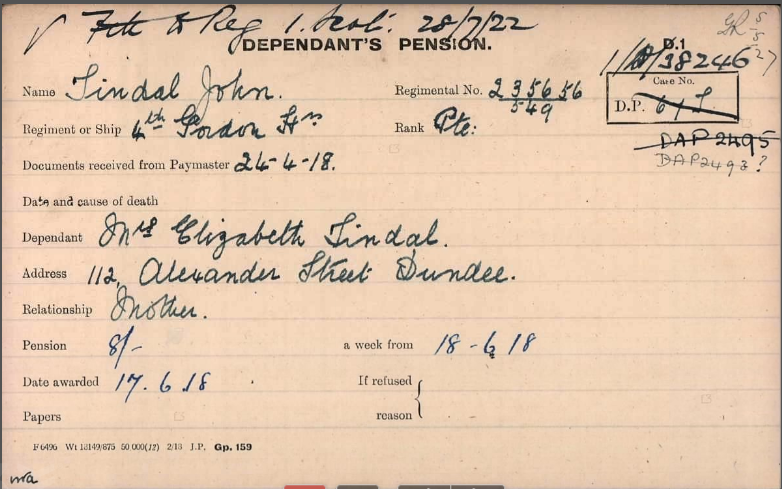 7th D Reg 1. Scot: 28/7/22
DEPENDANT'S PENSION.
5
5
27
D.1
1/D/38246
Name Tindal John.
Regimental No. 235656
549
Case No.
D.P. 6
Regiment or Ship 4th Gordon Hrs
Rank Pte:
DAP 2495
DAP2493?
Documents received from Paymaster 24-4-18.
Date and cause of death
Dependant Mrs Elizabeth Tindal.
Address 112, Alexander Street Dundee.
Relationship Mother.
Pension 8/- a week from 18-6 18
Date awarded 17.6.18
If refused
reason
Papers
F6496 Wt 13149/875 50 000(12) 2/18 J.P. Gp. 159